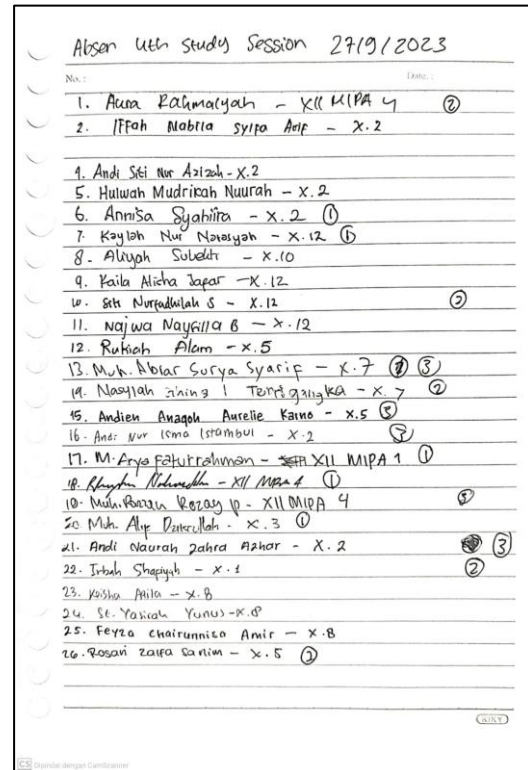 Absen 4th Study Session 27/9/2023
No. : Date. :
1. Aura Rahmaiyah - XII MIPA 4 ②
2. Iffah Nabila Syifa Arif - X.2
4. Andi Siti Nur Azizah - X.2
5. Hulwah Mudrikah Nuurah - X.2
6. Annisa Syahiira - X.2 ①
7. Kaylah Nur Natasyah - X.12 ①
8. Aliyah Subekti - X.10
9. Kaila Alicha Jafar - X.12
10. Siti Nurfadhilah S - X.12 ②
11. Najwa Naysilla B - X.12
12. Rukiah Alam - X.5
13. Muh. Abiar Surya Syarif - X.7 ③
14. Nasylah I Tenri - X.7 ②
15. Andien Anaqoh Aurelie Karno - X.5 ③
16. Andi Nur Isma Istambul - X.2 ③
17. M. Arya Faturrahman - XII MIPA 1 ①
18. - XII MIPA 4 ①
19. Muh. - XII MIPA 4 ③
20. Muh. Alif - X.3 ①
21. Andi Naurah Zahra Azhar - X.2 ③
22. Irbah Shafiyah - X.1 ②
23. Keisha - X.8
24. St. Yasirah Yunus - X.8
25. Feyza Chairunnisa Amir - X.8
26. Rosari Zalfa Sanim - X.5 ②
KIKY
CS Dipindai dengan CamScanner